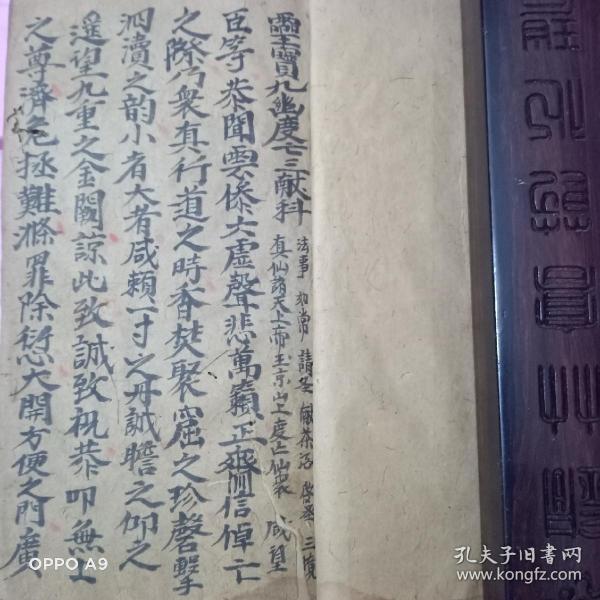 靈寶九幽度亡三献科
法事 如常 請聖 献茶酒 三獻
真仙諸天上帝玉京山上度亡仙衆 咸望
臣等恭聞雲慘大虛聲悲萬籟正齊信悼亡
之際乃衆真行道之時香焚聚窟之珍磬擊
泗濱之韵小者大者咸頼一寸之丹誠瞻之仰之
遥望九重之金闕諒此致誠致祝恭叩無上
之尊濟危拯難滌罪除愆大開方便之門廣
OPPO A9
孔夫子旧書网
www.kongfz.com